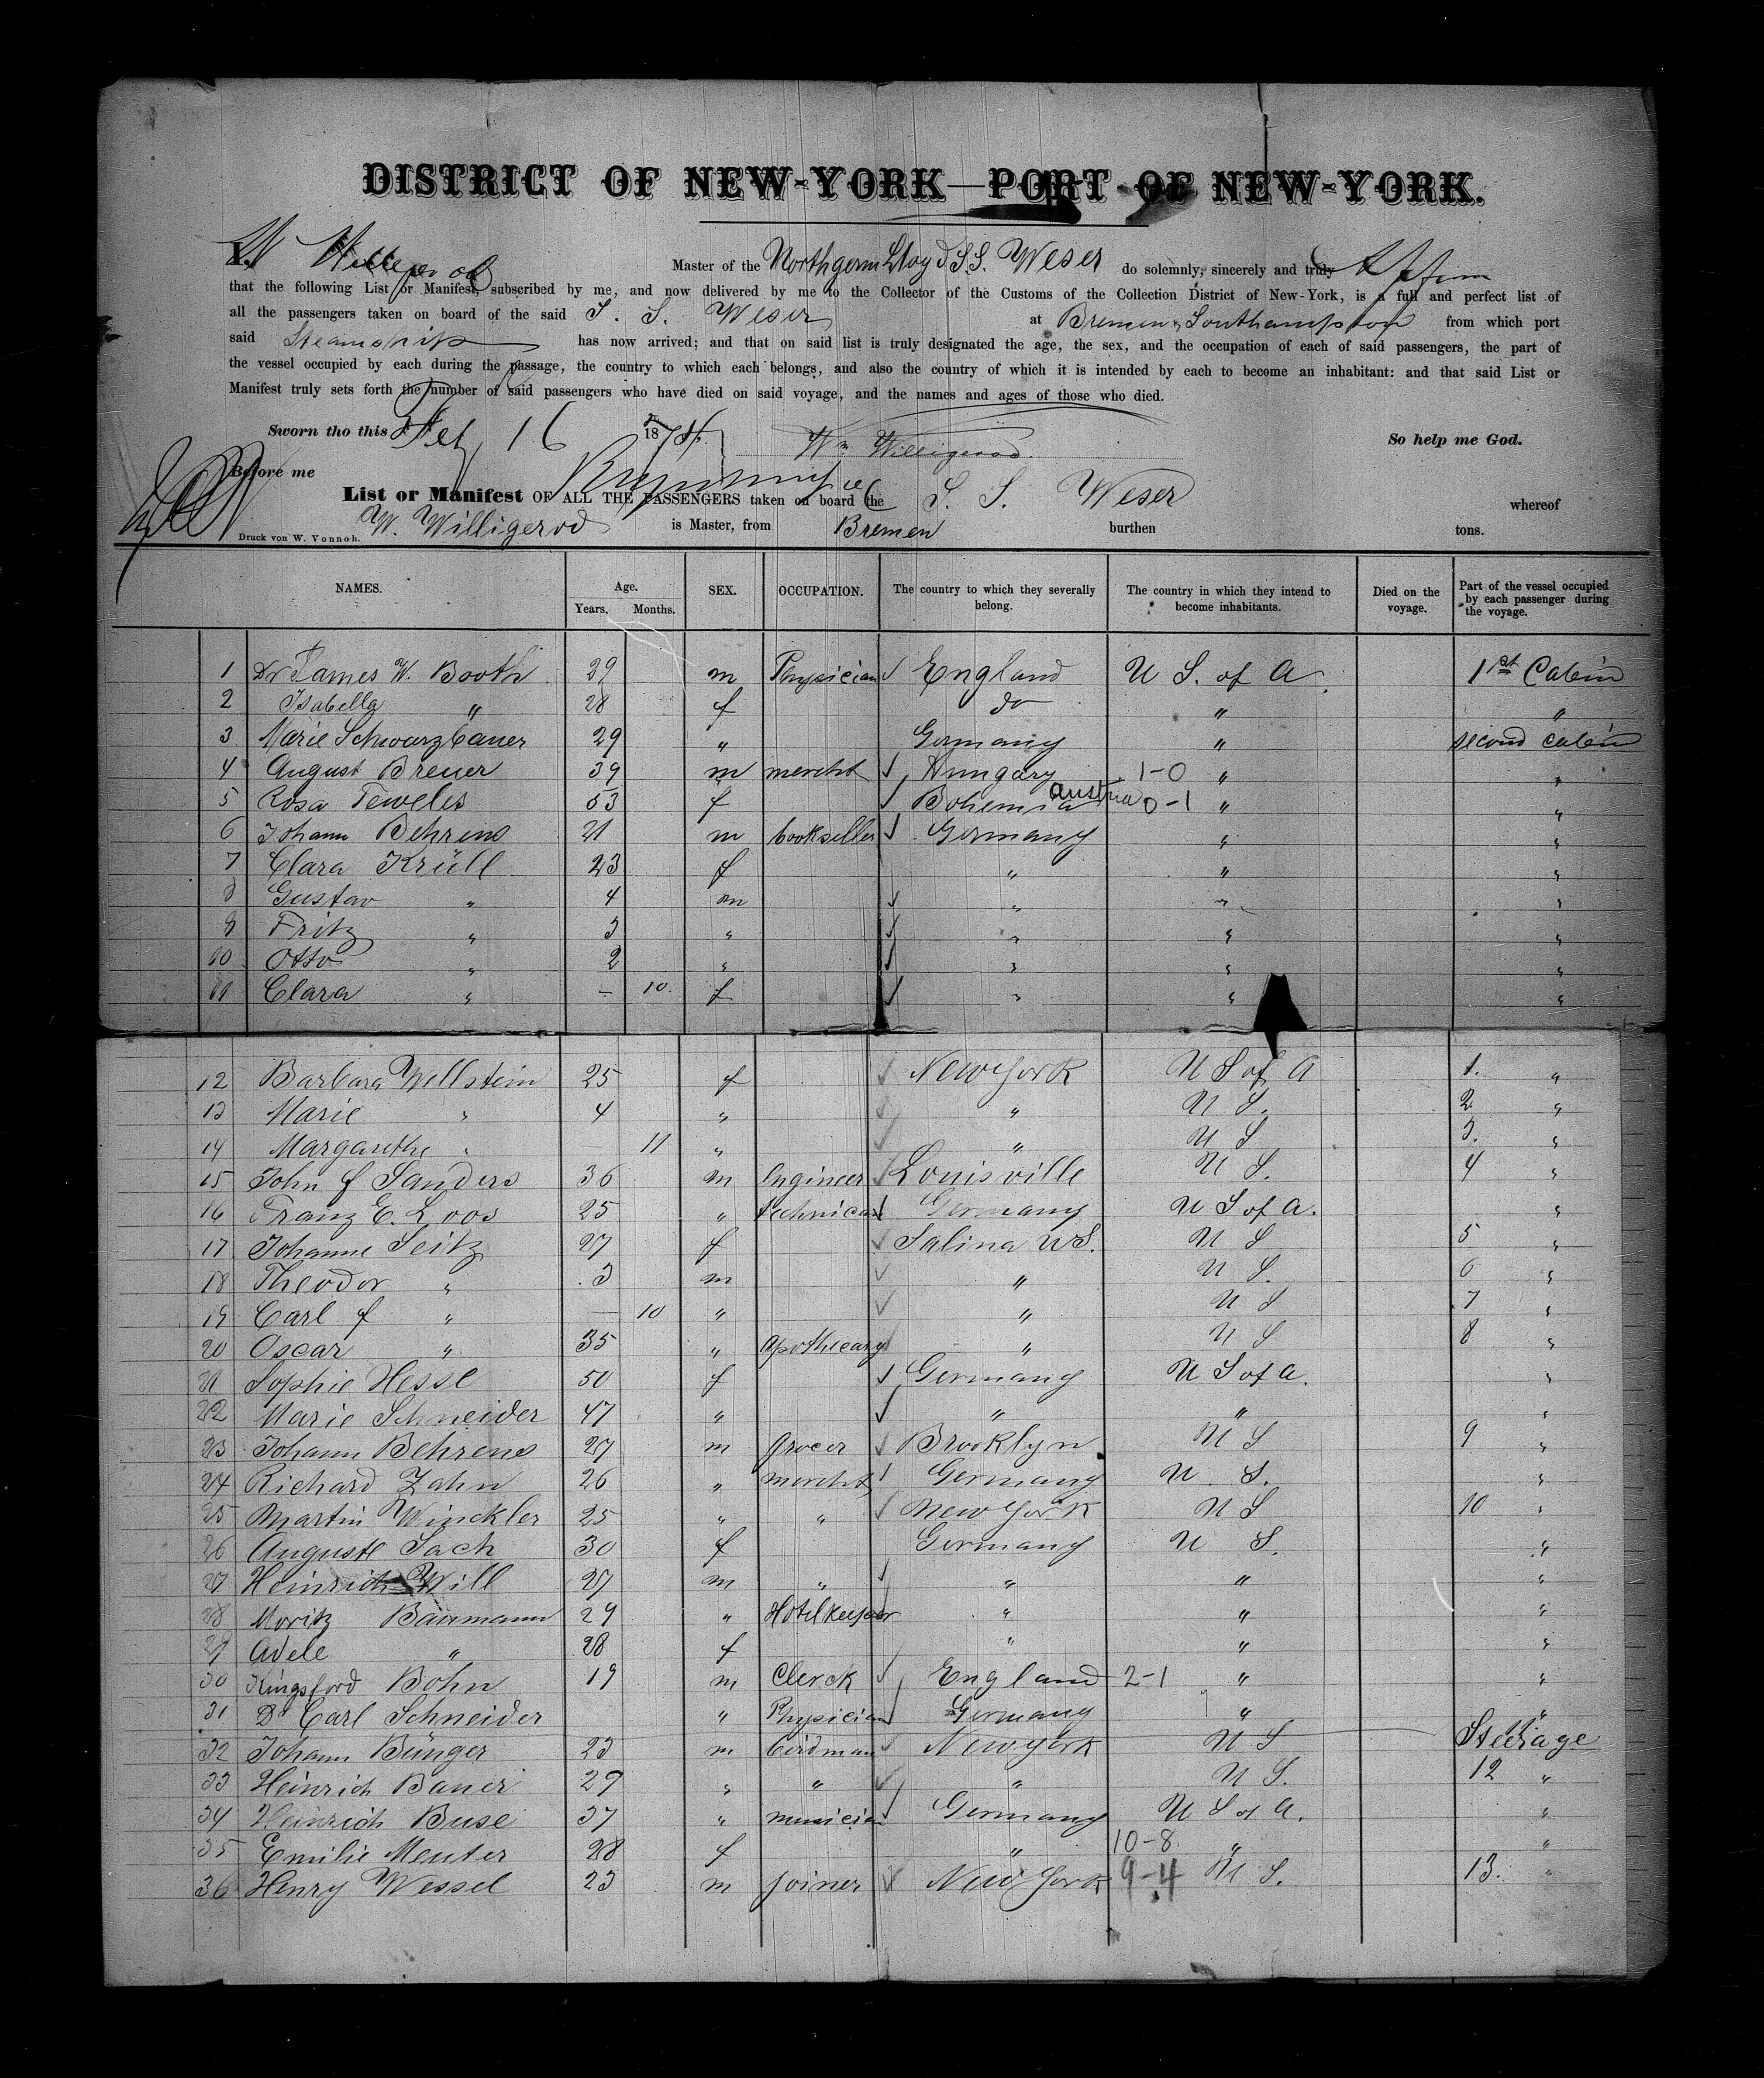 DISTRICT OF NEW-YORK—PORT OF NEW-YORK.
I, W Willigerod Master of the Northgerm Lloyd S.S. Weser do solemnly, sincerely and truly affirm
that the following List or Manifest, subscribed by me, and now delivered by me to the Collector of the Customs of the Collection District of New-York, is a full and perfect list of
all the passengers taken on board of the said S. S. Weser at Bremen & Southampton from which port
said Steamship has now arrived; and that on said list is truly designated the age, the sex, and the occupation of each of said passengers, the part of
the vessel occupied by each during the passage, the country to which each belongs, and also the country of which it is intended by each to become an inhabitant: and that said List or
Manifest truly sets forth the number of said passengers who have died on said voyage, and the names and ages of those who died.
Sworn tho this Feb 16 1874. Wm Willigerod So help me God.
Before me
List or Manifest OF ALL THE PASSENGERS taken on board the S. S. Weser whereof
W. Willigerod is Master, from Bremen burthen tons.
Druck von W. Vonnoh.
NAMES. Age. Years. Months. SEX. OCCUPATION. The country to which they severally belong. The country in which they intend to become inhabitants. Died on the voyage. Part of the vessel occupied by each passenger during the voyage.
1 Dr James W. Booth 29 m Physician England U S. of A. 1st Cabin
2 Isabella " 28 f do " "
3 Marie Schwarzbauer 29 " Germany " second cabin
4 August Breuer 39 m mercht Hungary 1-0 " "
5 Rosa Teweles 53 f Bohemia Austria 0-1 " "
6 Johann Behrens 21 m bookseller Germany " "
7 Clara Krüll 23 f " " "
8 Gustav " 4 m " " "
9 Fritz " 3 " " " "
10 Otto " 2 " " " "
11 Clara " — 10. f " " "
12 Barbara Wellstein 25 f New York U S of A 1. "
13 Marie " 4 " " U S. 2 "
14 Margarethe " — 11 " " U S 3. "
15 John f Sanders 36 m Engineer Louisville U S. 4 "
16 Franz E. Loos 25 " technican Germany U S of A. "
17 Johanne Seitz 27 f Salina US. U S 5 "
18 Theodor " 3 m " U S. 6 "
19 Carl f " — 10 " " U S 7 "
20 Oscar " 35 " apothecary " U S 8 "
21 Sophie Hesse 50 f Germany U S of A. "
22 Marie Schneider 47 " " " "
23 Johann Behrens 27 m grocer Brooklyn U S 9 "
24 Richard Zahn 26 " mercht Germany U. S. "
25 Martin Winckler 25 " " New York U S 10 "
26 Auguste Sach 30 f Germany U S. "
27 Heinrich Will 27 m " " " "
28 Moritz Baumann 29 " Hotelkeeper " " "
29 Adele " 28 f " " "
30 Kingsford Bohn 19 m Clerck England 2-1 " "
31 Dr Carl Schneider " Physician Germany " "
32 Johann Bünger 23 m birdman New York U S Steerage
33 Heinrich Bauer 29 " " " U S. 12 "
34 Heinrich Buse 37 " musician Germany U S of A. "
35 Emilie Meuter 28 f " 10-8. " "
36 Henry Wessel 23 m joiner New York 9-4 U S. 13. "